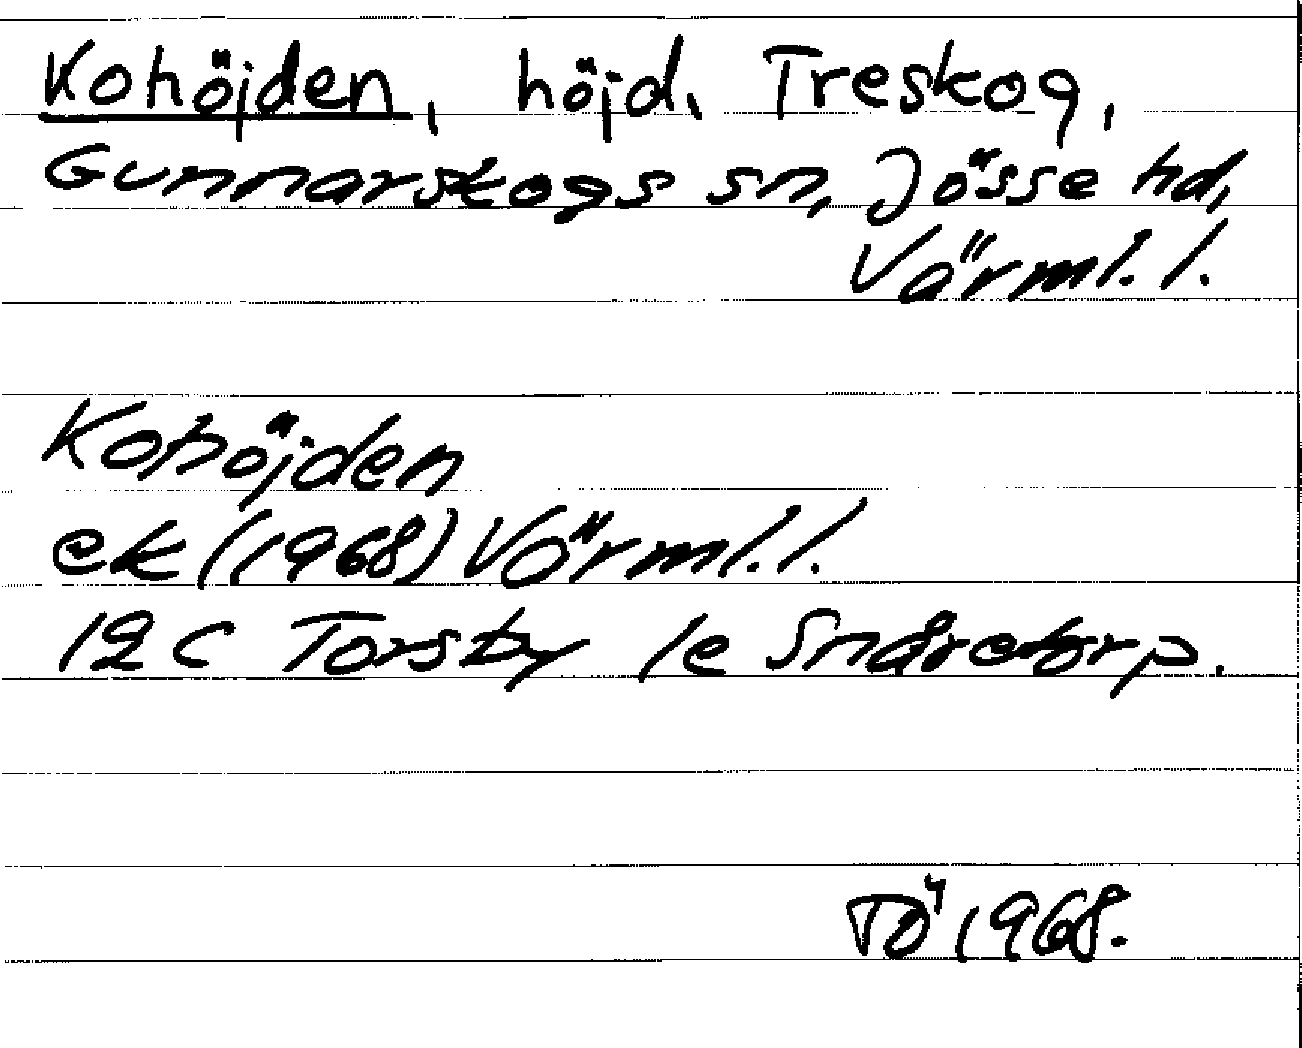 Kohöjden, höjd. Treskog,
Gunnarskogs sn, Jösse hd,
Värml. l.
Kohöjden
ek (1968) Värml. l.
12 C Torsby 1e Snåretorp.
TÖ 1968.